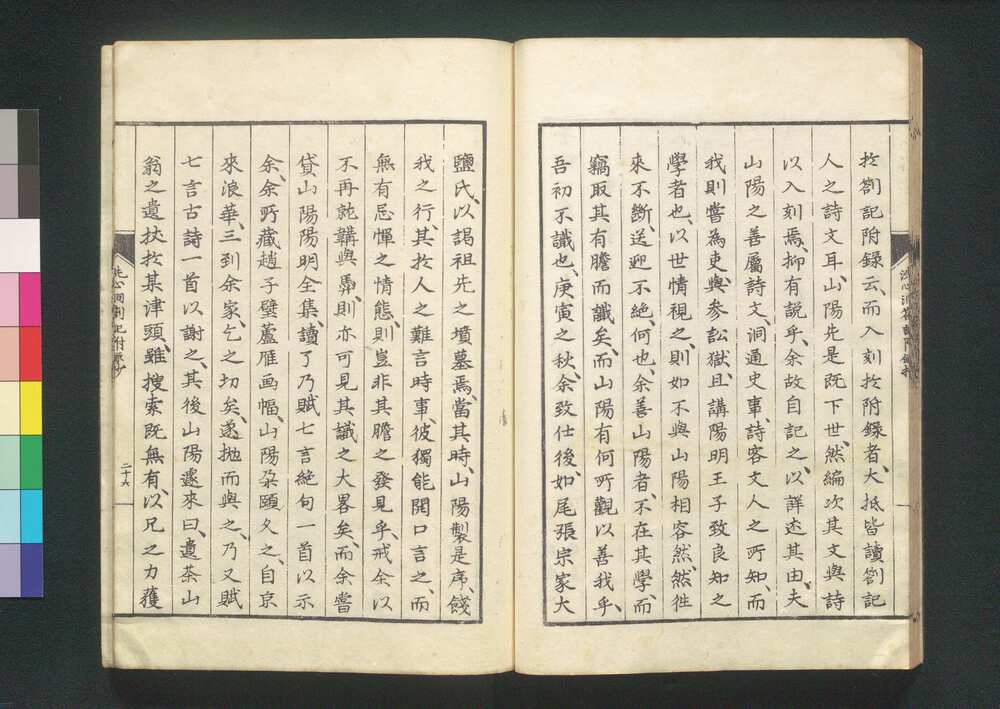 於劄記附錄云、而入刻於附錄者、大抵皆讀劄記
人之詩文耳、山陽先是既下世、然編次其文與詩
以入刻焉、抑有説乎、余故自記之、以詳述其由、夫
山陽之善屬詩文、洞通史事、詩容文人之所知、而
我則嘗為吏、與參訟獄、且講陽明王子致良知之
學者也、以世情視之、則如不與山陽相容然、然往
來不斷、送迎不絶、何也、余善山陽者、不在其學、而
竊取其有膽而識矣、而山陽有何所觀以善我乎、
吾初不識也、庚寅之秋、余致仕後、如尾張宗家大
鹽氏、以謁祖先之墳墓焉、當其時、山陽製是序、餞
我之行、其於人之難言時事、彼獨能開口言之、而
無有忌憚之情態、則豈非其膽之發見乎、戒余以
不再就韝與馽、則亦可見其識之大畧矣、而余嘗
貸山陽陽明全集、讀了乃賦七言絶句一首以示
余、余所藏趙子璧蘆雁画幅、山陽朶頤久之、自京
來浪華、三到余家、乞之切矣、遂抛而與之、乃又賦
七言古詩一首以謝之、其後山陽遽來曰、遺茶山
翁之遺扙於某津頭、雖搜索既無有、以兄之力獲
洗心洞劄記附錄抄
二十六